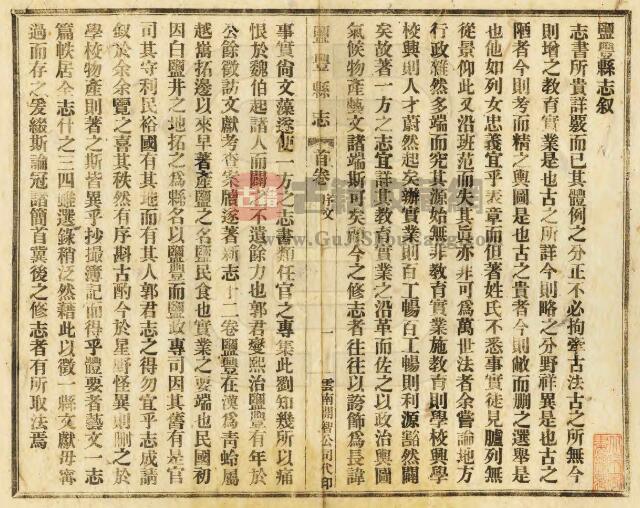 鹽豐縣志叙
志書所貴詳覈而已其體例之分正不必拘牽古法古之所無今
則增之教育實業是也古之所詳今則略之分野祥異是也古之
陋者今則考而精之輿圖是也古之貴者今則敝而删之選舉是
也他如列女忠義宜乎表章而但著姓氏不悉事實徒見臚列無
從景仰此又沿班范而失其眞亦非可為萬世法者余嘗論地方
行政雖然多端而究其源始無非教育實業施教育則學校興學
校興則人才蔚然起矣辦實業則百工暢百工暢則利源豁然闢
矣故著一方之志宜詳其教育實業之沿革而佐之以政治輿圖
氣候物產藝文諸端斯可矣而今之修志者往往以誇飾為長諱
鹽豐縣志
首卷
序文
一
雲南開智公司代印
事實尙文藻遂使一方之志書類任官之專集此劉知幾所以痛
恨於魏伯起諸人而闢之不遺餘力也郭君燮熙治鹽豐有年於
公餘徵訪文獻考查案牘遂著新志十二卷鹽豐在漢為青蛉屬
越嶲拓邊以來早著產鹽之名鹽民食也實業之要端也民國初
因白鹽井之地拓之為縣名以鹽豐而鹽政專司因其舊有是官
司其守利民裕國有其地而有其人郭君志之得勿宜乎志成請
叙於余余覽之喜其秩然有序斟古酌今於星野怪異則删之於
學校物產則著之斯皆異乎抄撮簿記而得乎體要者藝文一志
篇帙居全志什之三四雖選錄稍泛然藉此以徵一縣文獻毋寗
過而存之爰綴斯論冠諸簡首冀後之修志者有所取法焉
古籍收藏網
www.GuJiShouCang.com